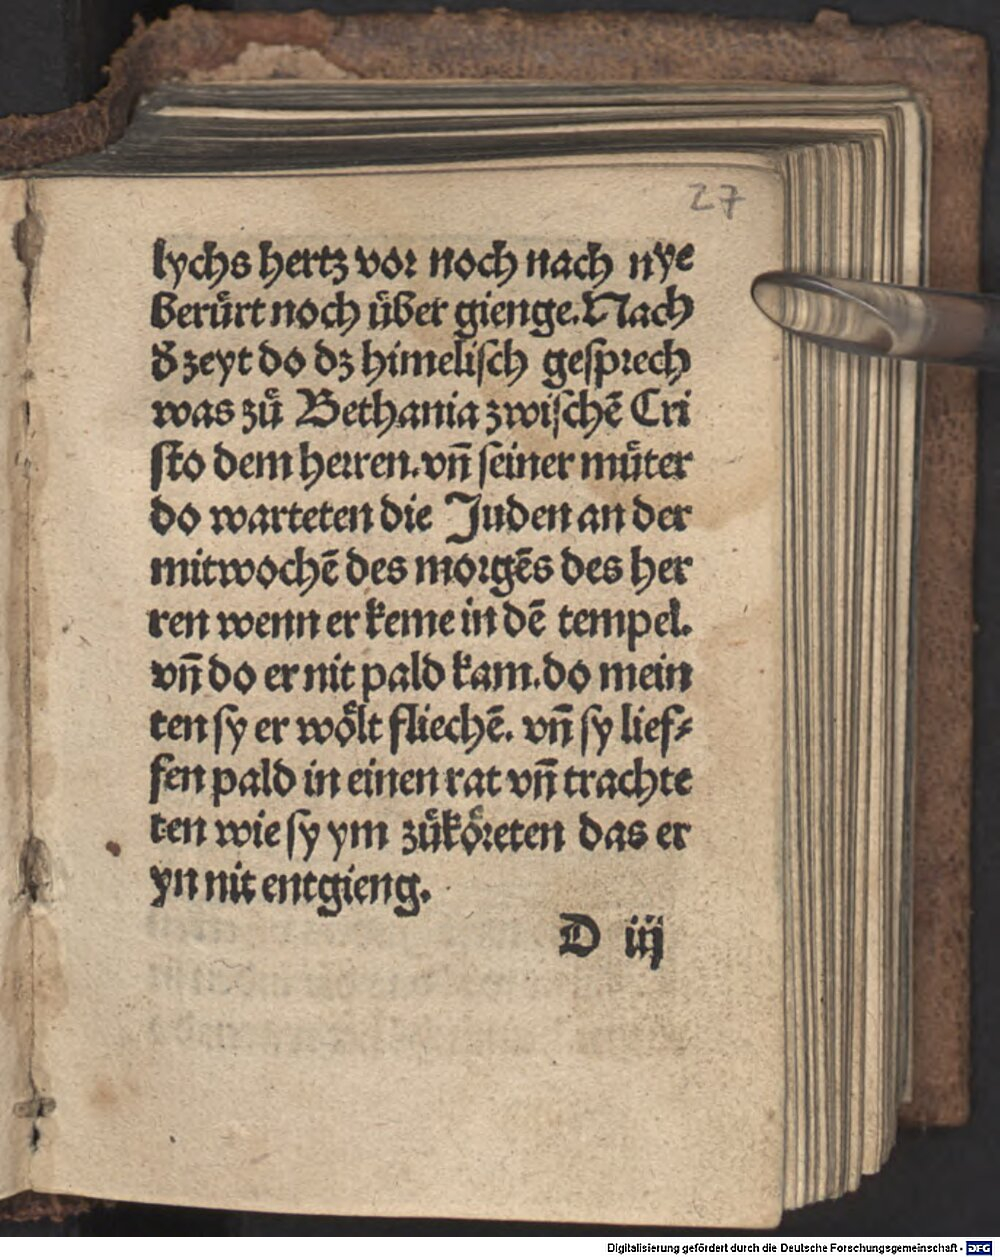 27
lychs hertz vor noch nach nye
berürt noch über gienge. Nach
d̕ zeyt do dz himelisch gesprech
was zů Bethania zwischē Cri
sto dem herren. vñ seiner můter
do warteten die Juden an der
mitwochē des morgēs des her
ren wenn er keme in dē tempel.
vñ do er nit pald kam. do mein
ten sy er wölt fliechē. vñ sy lief⸗
fen pald in einen rat vñ trachte
ten wie sy ym zůköreten das er
yn nit entgieng.
D iij
Digitalisierung gefördert durch die Deutsche Forschungsgemeinschaft - DFG